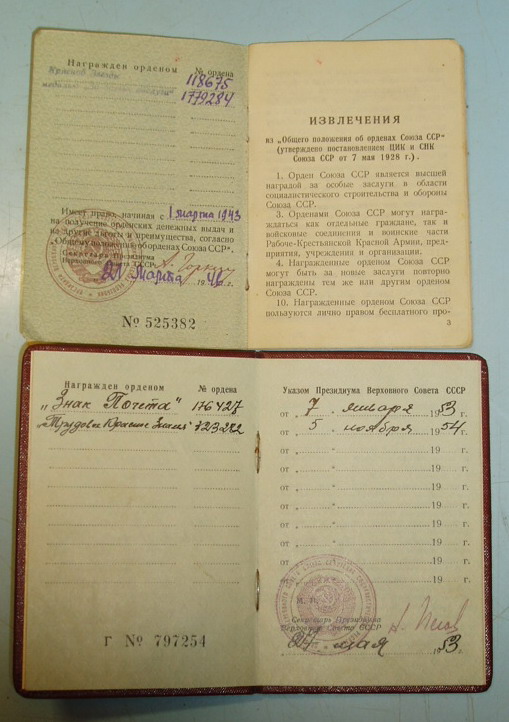 Награжден орденом № ордена
Красная Звезда 118675
медалью „За боевые заслуги“ 1779284
Имеет право, начиная с 1 марта 1943
на получение орденских денежных выдач и
на другие льготы и преимущества, согласно
„Общему положению об орденах Союза ССР“.
Секретарь Президиума
Верховного Совета СССР А. Горкин
21 Марта 1946 г.
№ 525382
ИЗВЛЕЧЕНИЯ
из „Общего положения об орденах Союза ССР“
(утверждено постановлением ЦИК и СНК
Союза ССР от 7 мая 1928 г.).
1. Орден Союза ССР является высшей
наградой за особые заслуги в области
социалистического строительства и обороны
Союза ССР.
3. Орденами Союза ССР могут награ-
ждаться как отдельные граждане, так и
войсковые соединения и воинские части
Рабоче-Крестьянской Красной Армии, пред-
приятия, учреждения и организации.
4. Награжденные орденом Союза ССР
могут быть за новые заслуги повторно
награждены тем же или другим орденом
Союза ССР.
10. Награжденные орденом Союза ССР
пользуются лично правом бесплатного про-
3
Награжден орденом № ордена
„Знак Почета“ 176427
Трудовое Красное Знамя 123282
Г № 797254
Указом Президиума Верховного Совета СССР
от „ 7 “ января 1953 г.
от „ 5 “ ноября 1954 г.
от „ “ 19 г.
от „ “ 19 г.
от „ “ 19 г.
от „ “ 19 г.
от „ “ 19 г.
от „ “ 19 г.
от „ “ 19 г.
М. П.
Секретарь Президиума
Верховного Совета СССР Н. Пегов
„27“ мая 1953 г.